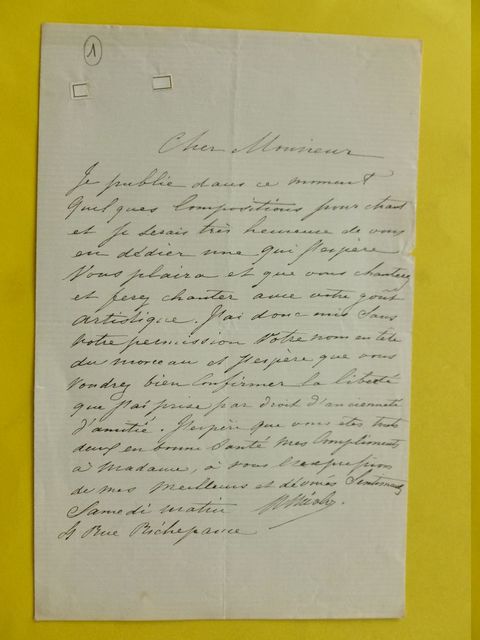 1
Cher Monsieur
Je publie dans ce moment
quelques compositions pour chant
et je serais très heureuse de vous
en dédier une qui j'espère
vous plaira et que vous chanterez
et ferez chanter avec votre goût
artistique. J'ai donc mis sans
votre permission votre nom en tête
du morceau et j'espère que vous
voudrez bien confirmer la liberté
que j'ai prise par droit d'ancienneté
d'amitié. J'espère que vous êtes tous
deux en bonne santé mes compliments
à Madame, à vous l'expression
de mes meilleurs et dévoués sentiments
Samedi matin
4 Rue Richepance